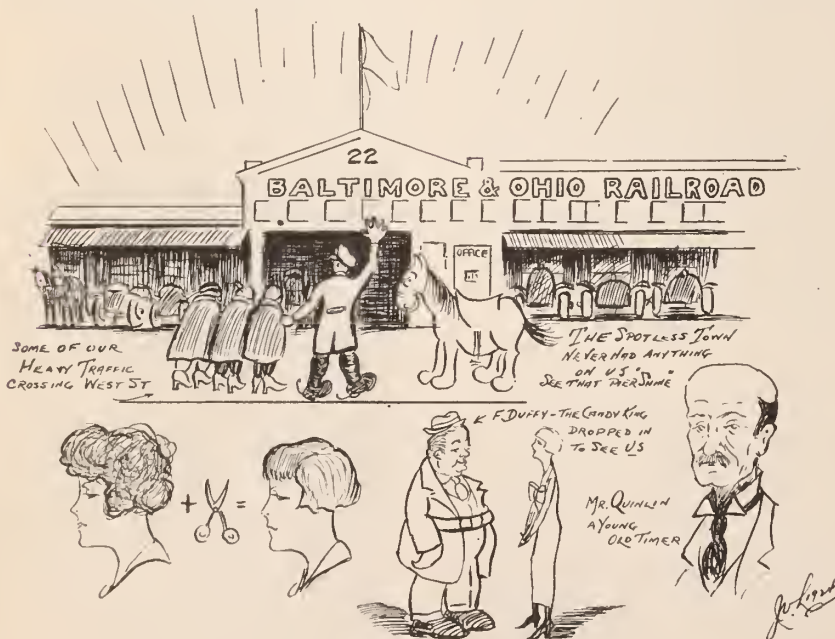 22
BALTIMORE & OHIO RAILROAD
OFFICE
SOME OF OUR
HEAVY TRAFFIC
CROSSING WEST ST
THE SPOTLESS TOWN
NEVER HAD ANYTHING
ON US "
SEE THAT PIER SHINE"
F. DUFFY - THE CANDY KING
DROPPED IN
TO SEE US
+ =
MR. QUINLIN
A YOUNG
OLD TIMER